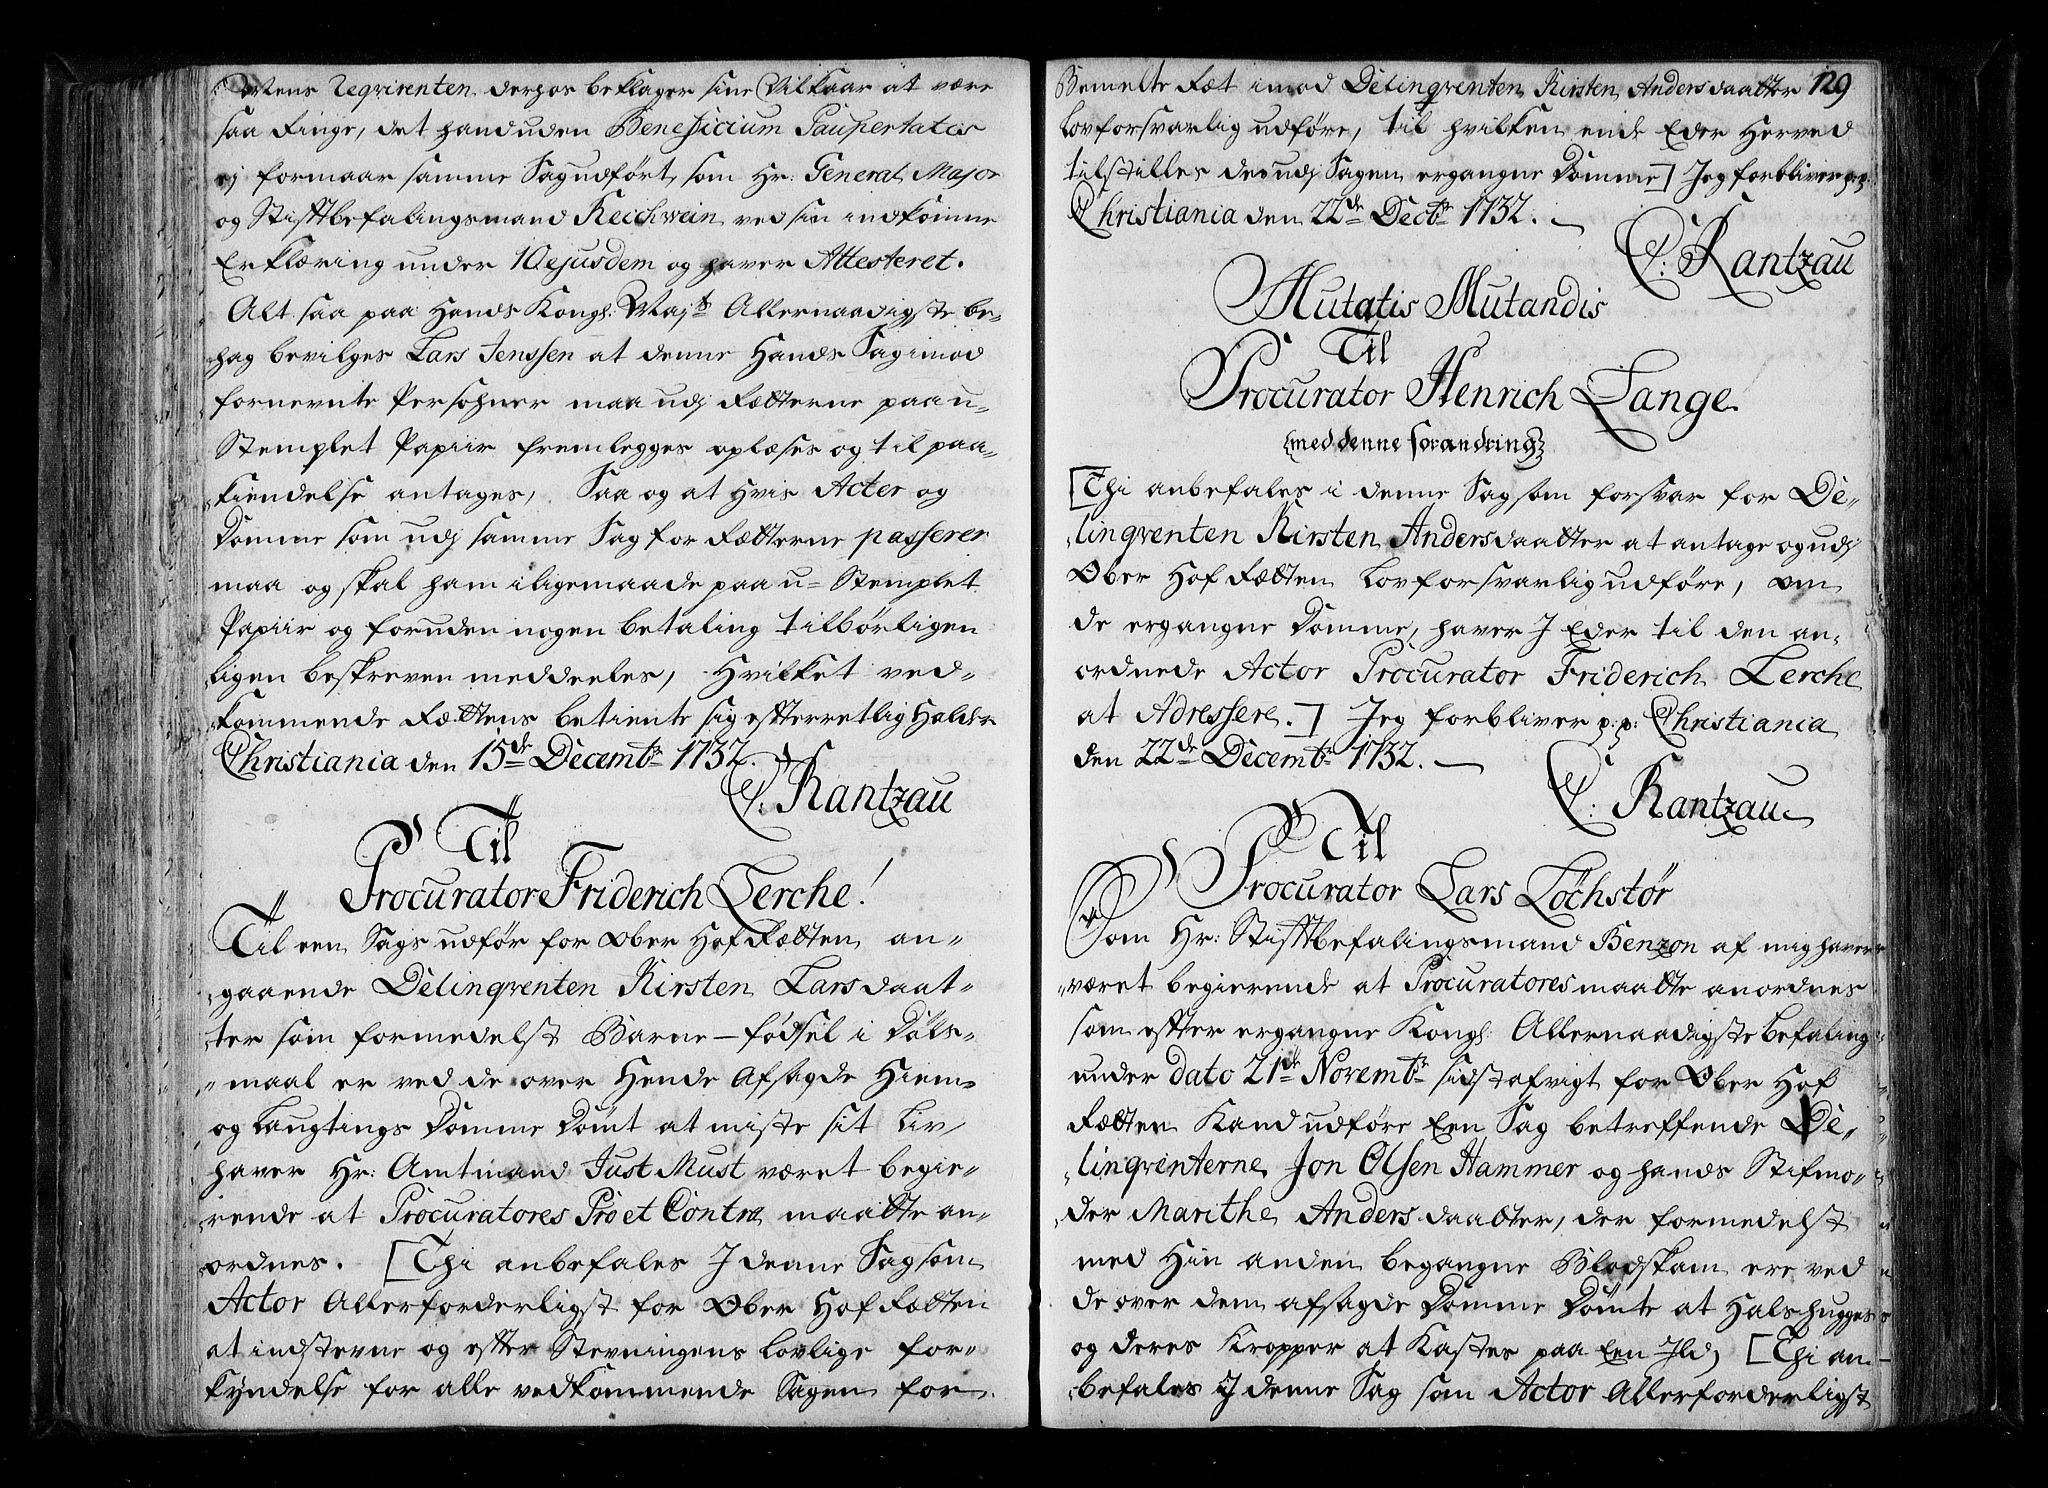 Mens Reqvirenten derhos beklager sine Vilkaar at være
saa Ringe, det hand uden Beneficium Paupertatis
ej formaar samme Sag udført, som Hr: General Major
og Stiftbefalingsmand Reichwein ved sin indkomne
Erklæring under 10 ejusdem og haver Attesteret.
Alt saa paa Hands Kongl: Majts Allernaadigste be-
hag bevilges Lars Jenssen at denne Hands Sag imod
fornevnte Persohner maa udj Rætterne paa u-
Stemplet Papiir fremlegges oplæses og til paa-
kiendelse antages, Saa og at Hvis Acter og
Domme som udj samme Sag for Rætterne passerer
maa og skal ham i ligemaade paa u- Stemplet
Papiir og foruden nogen betaling tilbørligen
ligen beskreven meddeeles, Hvilket ved-
kommende Rættens betiente sig efterretlig Holder
Christiania den 15de Decembr 1732.
C: Rantzau
Til
Procurator Friderich Lerche!
Til een Sags udfør for Ober Hof Rætten an-
gaaende Delinqventen Kirsten Larsdaat-
ter som formedelst Barne-fødsel i Døls-
maal er ved de over Hende Afsagde Hiem-
og Laugtings Domme Dømt at miste sit Liv,
haver Hr: Amtmand Just Must været begie-
rende at Procuratores Pro et Contra maatte an-
ordnes. [Thi anbefales I denne Sag som
Actor Allerforderligst for Ober Hof Rætten
at indstevne og efter Stevningens lovlige for-
kyndelse for alle vedkommende Sagen for
Bemelte Ræt imod Delinqventen Kirsten Andersdaatter 129
Lovforsvarlig udføre, til hvilken ende Eder Herved
tilstilles de udj Sagen ergangne Domme] Jeg forbliver p:p:
Christiania den 22de Decbr 1732.
C: Rantzau
Mutatis Mutandis
Til
Procurator Henrich Lange.
{med denne forandring}
[Thi anbefales i denne Sag som forsvar for De-
linqventen Kirsten Andersdaatter at antage og udj
Ober Hof Rætten Lovforsvarlig udføre, om
de ergangne Domme, haver I Eder til den an-
ordnede Actor Procurator Friderich Lerche
at Adressere.] Jeg forbliver p:p: Christiania
den 22de Decembr 1732.
C: Rantzau
Til
Procurator Lars Löchstör
Som Hr: Stiftbefalingsmand Benzon af mig haver
været begierende at Procuratores maatte anordnes
som efter ergangne Kongl: Allernaadigste Befaling
under dato 21de Novembr sidst afvigt for Ober Hof
Rætten Kand udføre Een Sag betreffende De-
linqventerne Jon Olsen Hammer og hands Stifmo-
der Marithe Andersdaatter, der formedelst
med Hin anden begangne Blodskam ere ved
de over dem afsagde Domme Dømte at Halshugges
og deres Kropper at Kastes paa Een Ild, [Thi an-
befales I denne Sag som Actor Allerforderligst